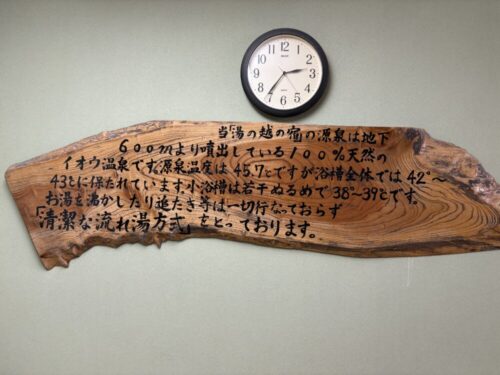 12
1
2
3
4
5
6
7
8
9
10
11
当「湯の越の宿」の源泉は地下
600mより噴出している100%天然の
イオウ温泉です。源泉温度は45.7℃ですが浴槽全体では42°〜
43℃に保たれています。小浴槽は若干ぬるめで38°〜39℃です。
お湯を沸かしたり追だき等は一切行なっておらず
「清潔な流れ湯方式」をとっております。